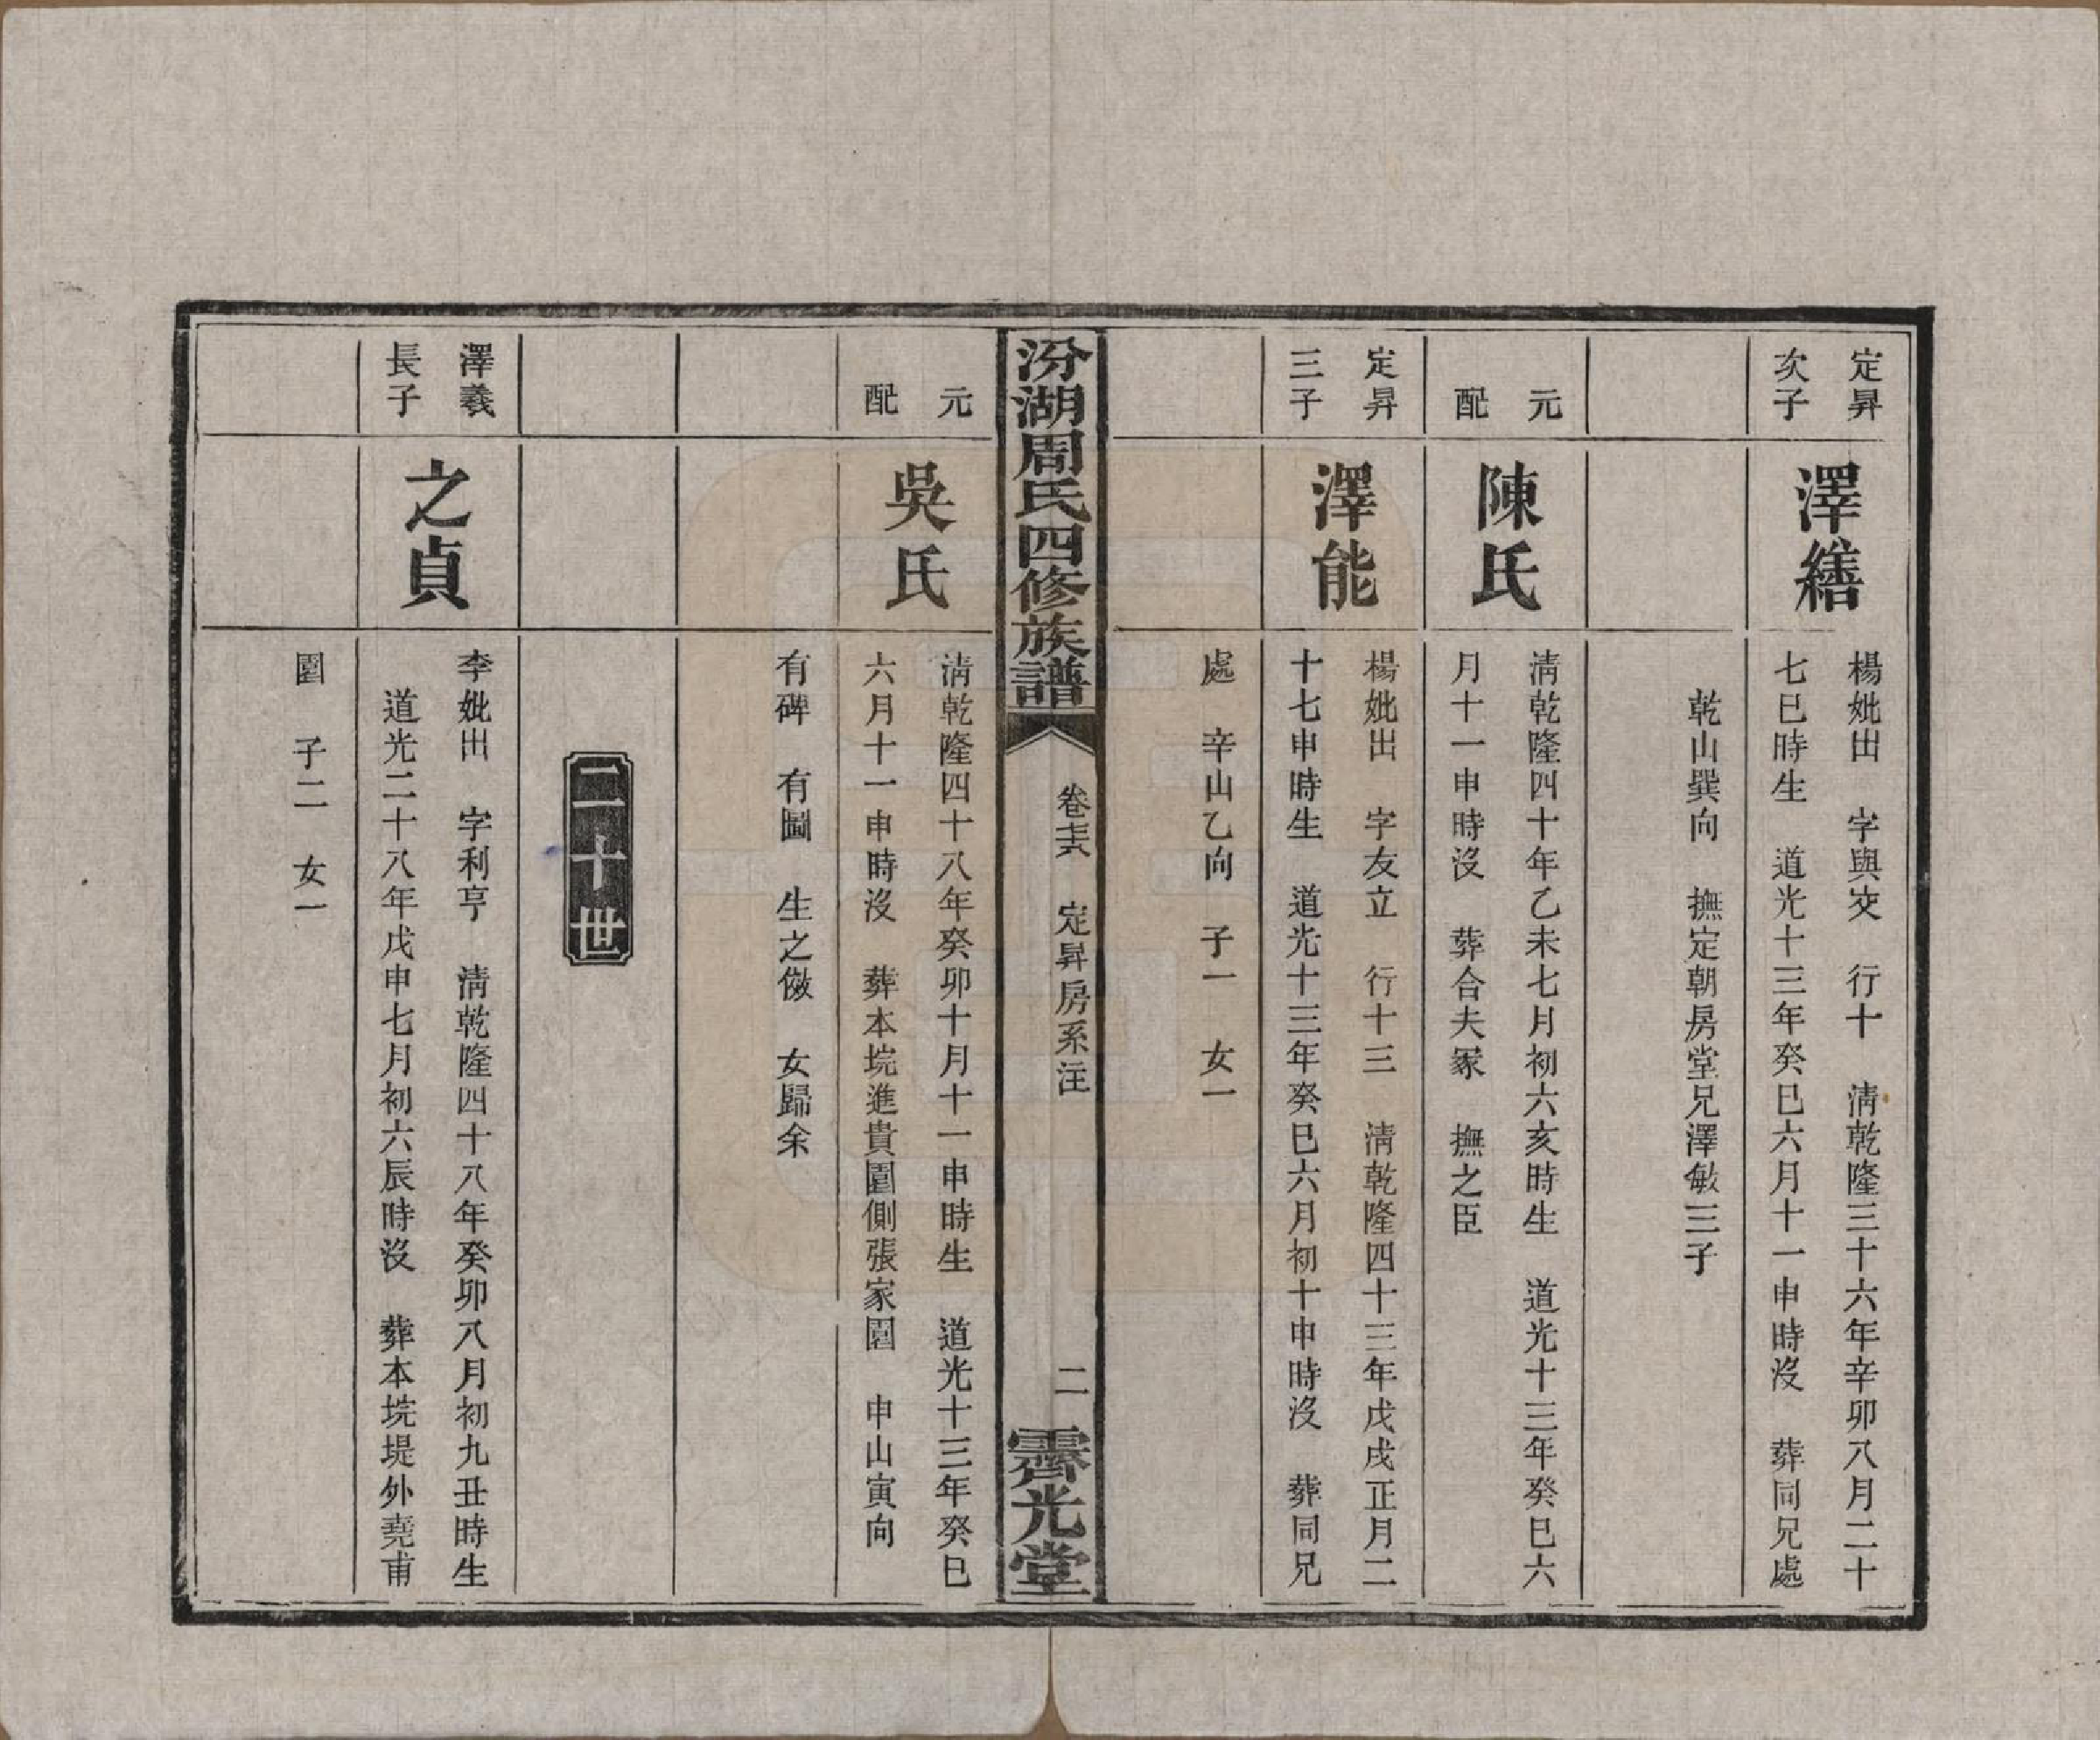 定昇
次子
澤繕
楊妣出　字與交　行十　清乾隆三十六年辛卯八月二十
七巳時生　道光十三年癸巳六月十一申時沒　葬同兄處
乾山巽向　撫定朝房堂兄澤敏三子
元
配
陳氏
清乾隆四十年乙未七月初六亥時生　道光十三年癸巳六
月十一申時沒　葬合夫冢　撫之臣
定昇
三子
澤能
楊妣出　字友立　行十三　清乾隆四十三年戊戌正月二
十七申時生　道光十三年癸巳六月初十申時沒　葬同兄
處　辛山乙向　子一　女一
汾湖周氏四修族譜
定昇房系注
二
霽光堂
元
配
吳氏
清乾隆四十八年癸卯十月十一申時生　道光十三年癸巳
六月十一申時沒　葬本垸進貴園側張家園　申山寅向
有碑　有圖　生之儆　女歸余
二十世
澤羲
長子
之貞
李妣出　字利亨　清乾隆四十八年癸卯八月初九丑時生
道光二十八年戊申七月初六辰時沒　葬本垸堤外堯甫
園　子二　女一